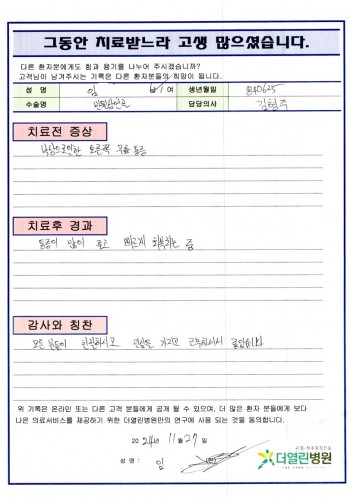 그동안 치료받느라 고생 많으셨습니다.
다른 환자분에게도 힘과 용기를 나누어 주시겠습니까?
고객님이 남겨주시는 기록은 다른 환자분들의 희망이 됩니다.
성 명 임 남/여 생년월일 840625
수술명 담당의사 김형주
치료전 증상
낙상으로인한 오른쪽 무릎 통증
치료후 경과
통증이 많이 줄고 빠르게 회복하는 중
감사와 칭찬
모든 분들이 친절하시고 진심을 가지고 근무하셔서 좋았습니다
위 기록은 온라인 또는 다른 고객 분들에게 공개 될 수 있으며, 더 많은 환자 분들에게 보다
나은 의료서비스를 제공하기 위한 더열린병원만의 연구에 사용 되는 것을 동의합니다.
2024년 11월 27일
성 명 : 임 (인)
더열린병원